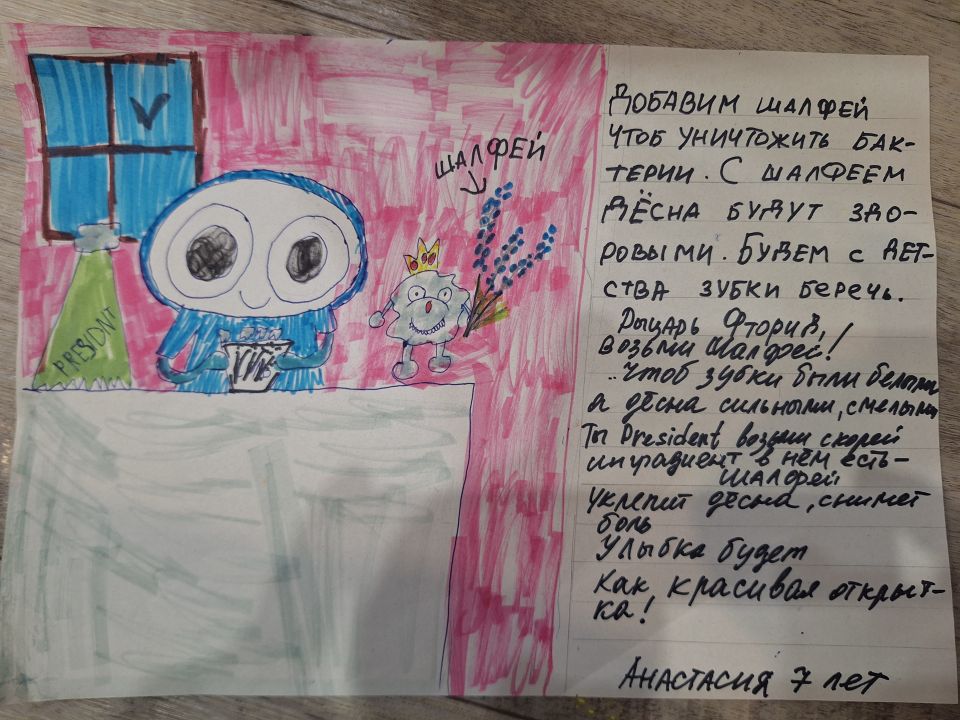 ШАЛФЕЙ
PRESIDNT
ДОБАВИМ ШАЛФЕЙ
ЧТОБ УНИЧТОЖИТЬ БАК-
ТЕРИИ. С ШАЛФЕЕМ
ДЁСНА БУДУТ ЗДО-
РОВЫМИ. БУДЕМ С ДЕТ-
СТВА ЗУБКИ БЕРЕЧЬ.
Рыцарь Фторид,
возьми Шалфей!
Чтоб зубки были белыми
а дёсна сильными, смелыми
Ты President возьми скорей
ингрadиент в нём есть-
шалфей
укрепит дёсна, снимет
боль
Улыбка будет
Как красивая открыт-
ка!
АНАСТАСИЯ 7 лет